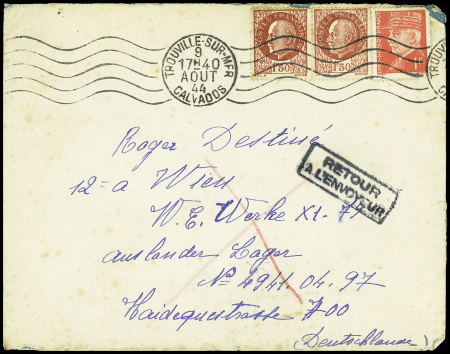 TROUVILLE-SUR-MER
9
17H40
AOUT
44
CALVADOS
POSTES FRANÇAISES
1F50
1F50
Roger Destiné
12=a Wien
W.E. Werke XI-77
auslander Lager
N° 4941.04.97
Haidequestrasse 700
(Deutschlande)
RETOUR
A L'ENVOYEUR